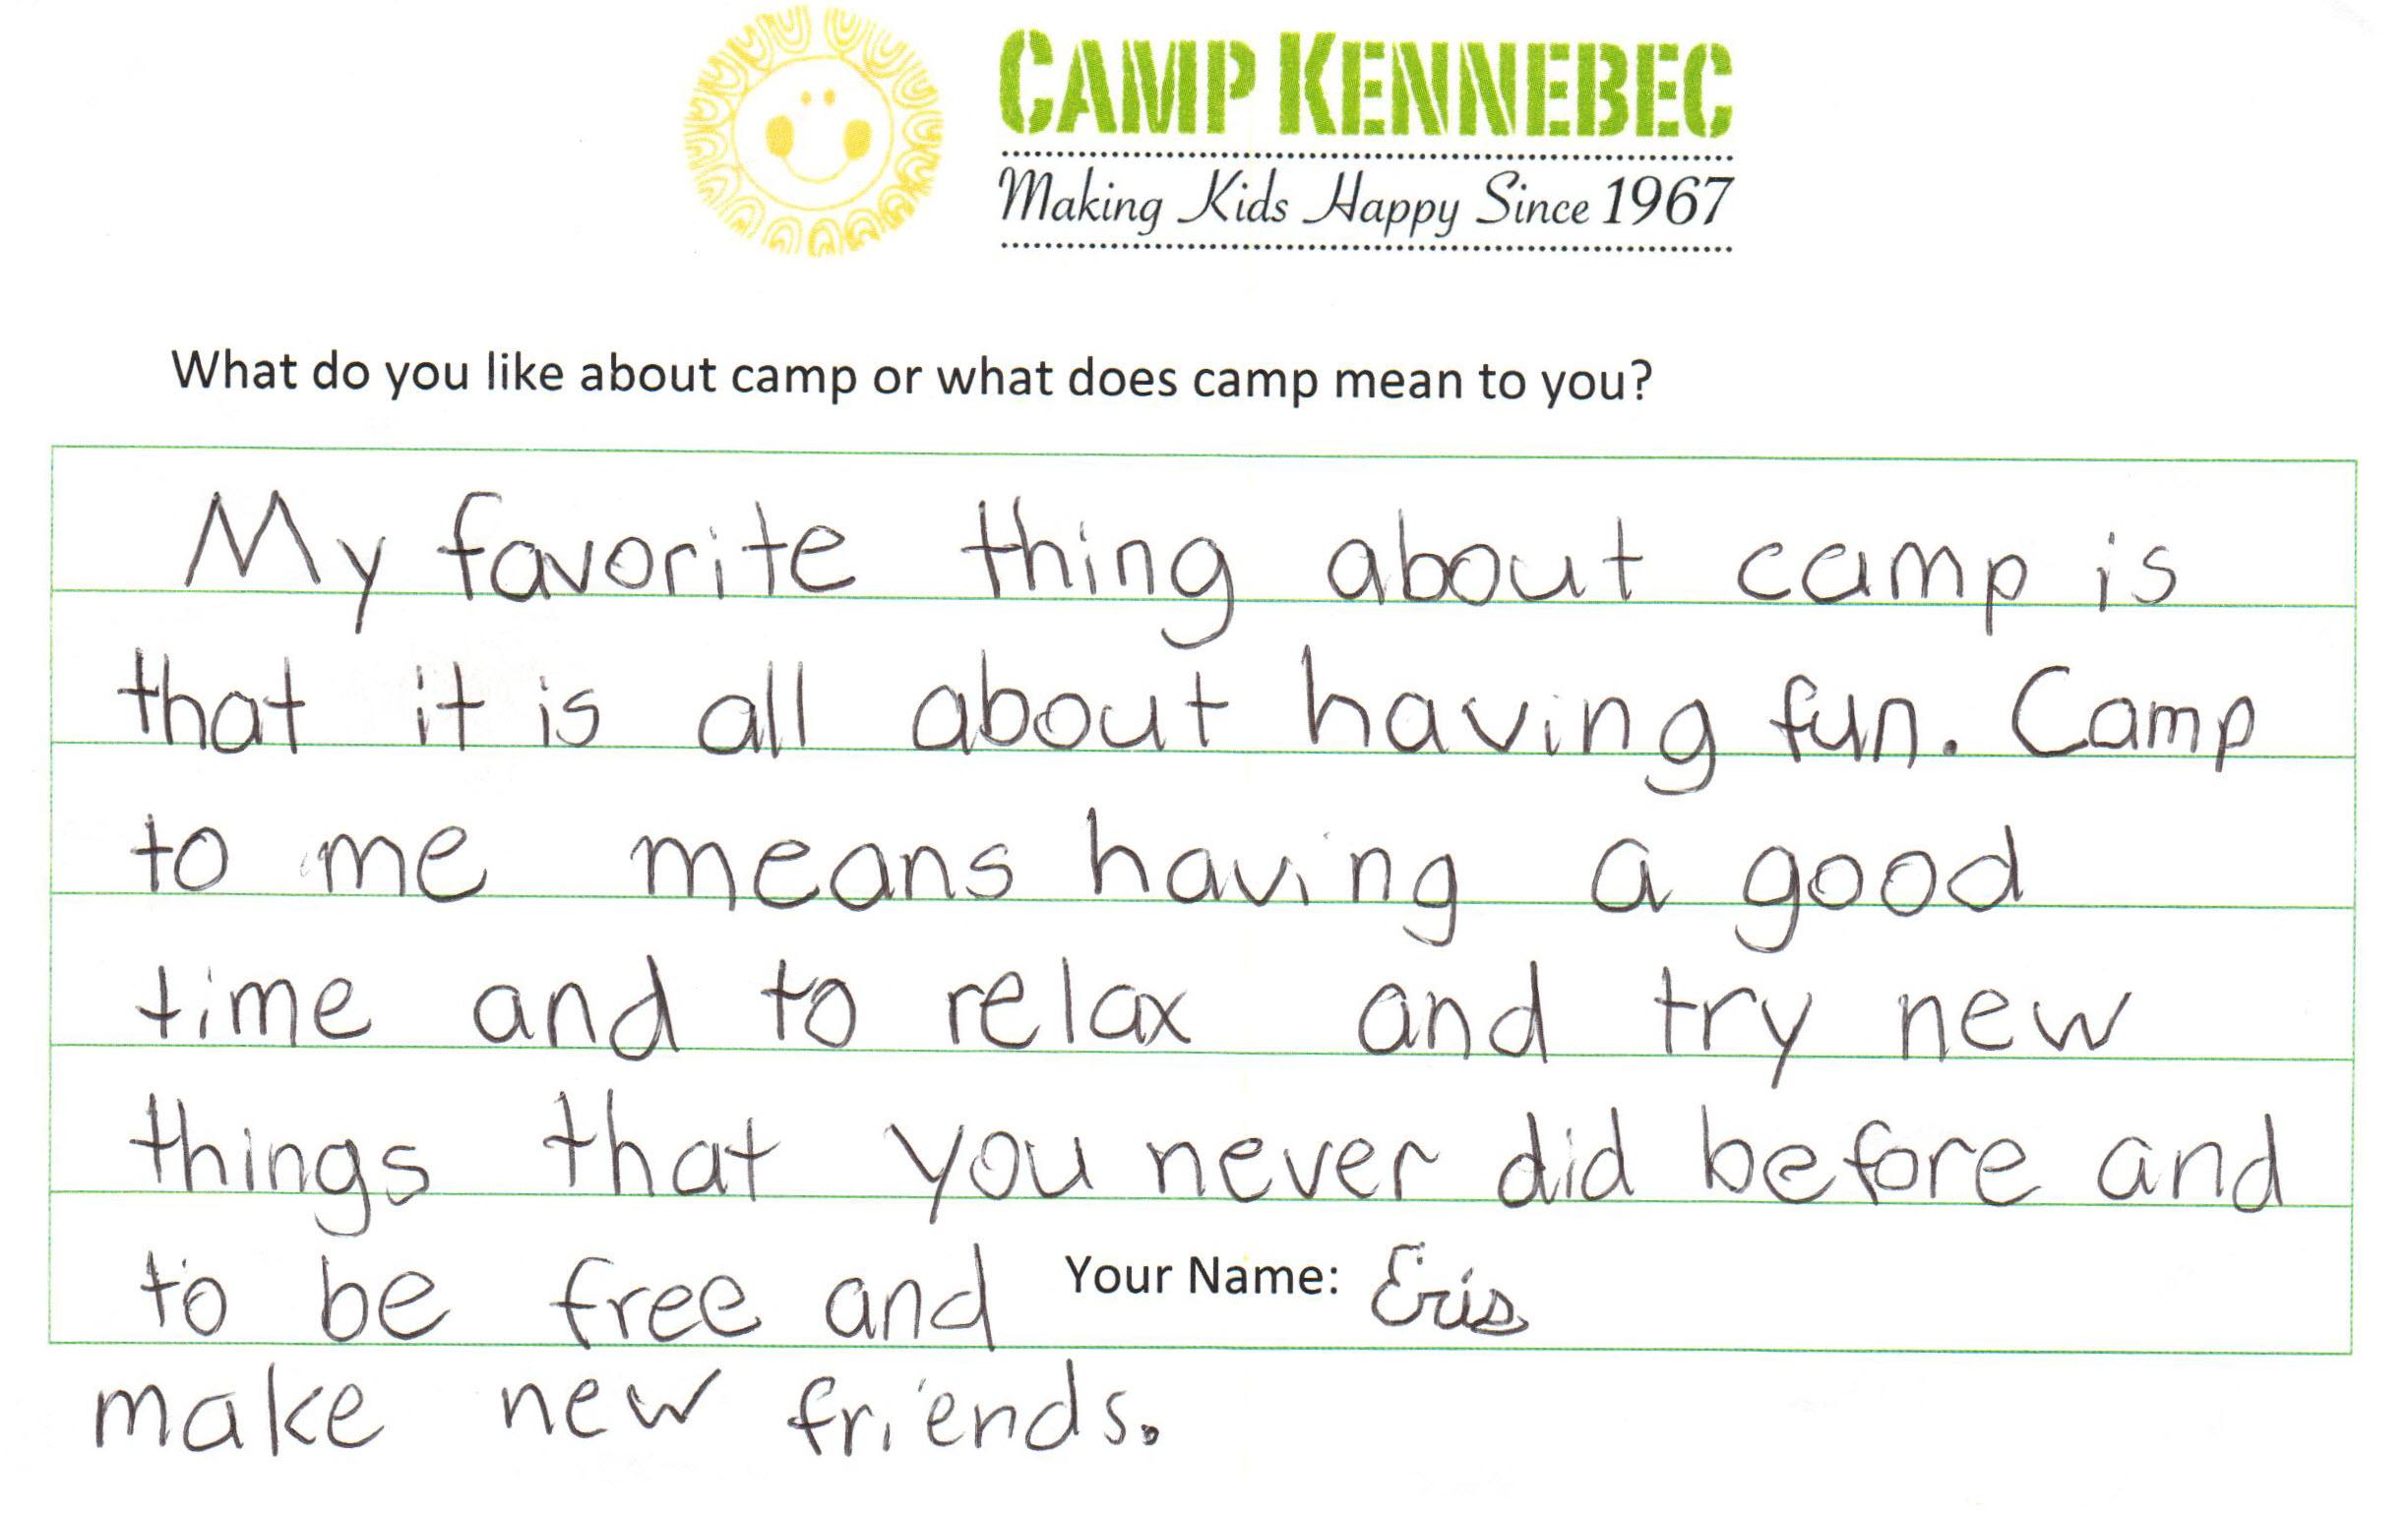 CAMP KENNEBEC
Making Kids Happy Since 1967
What do you like about camp or what does camp mean to you?
My favorite thing about camp is
that it is all about having fun. Camp
to me means having a good
time and to relax and try new
things that you never did before and
to be free and Your Name: Eris
make new friends.